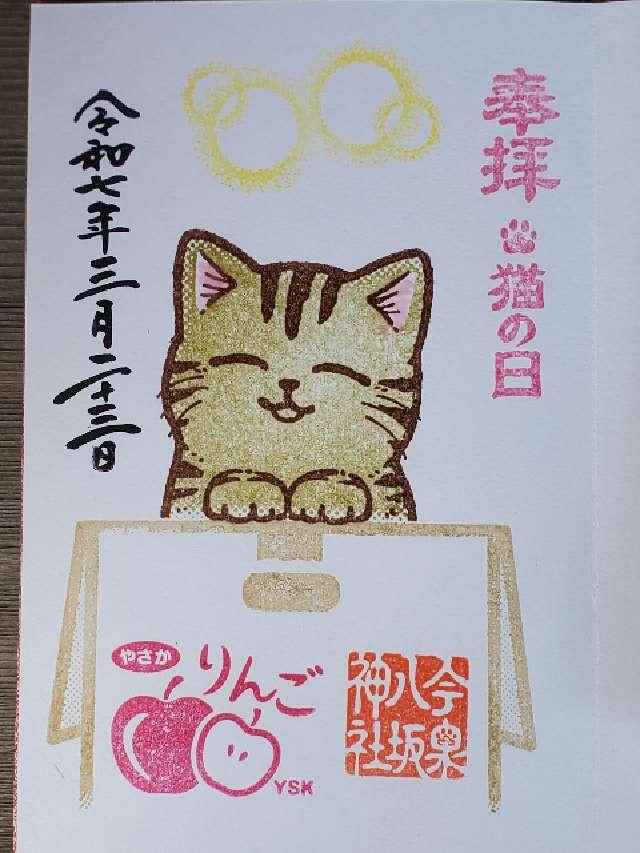 奉拝
猫の日
令和七年三月二十三日
やさか
りんご
YSK
今泉
八坂
神社